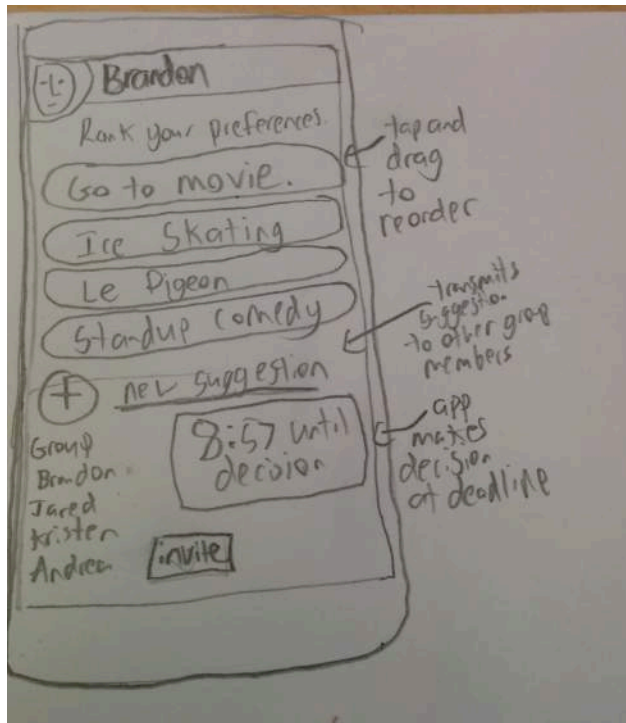 Brandon
Rank your preferences.
Go to movie.
Ice Skating
Le Pigeon
Standup Comedy
+ new suggestion
8:57 until
decision
Group
Brandon
Jared
Kristen
Andrea
invite
tap and
drag
to
reorder
transmits
suggestion
to other group
members
app
makes
decision
at deadline